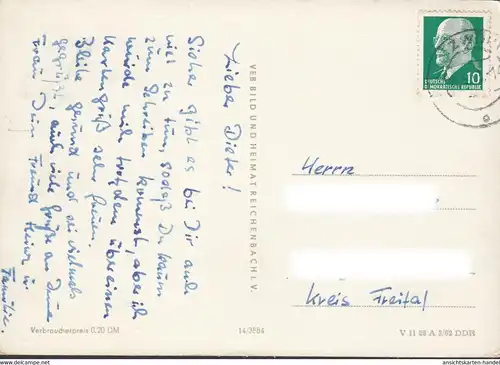 Lieber Dieter!
Sicher gibt es bei Dir auch
viel zu tun, sodaß Du kaum
zum Schreiben kommst, aber ich
würde mich trotzdem über einen
Kartengruß sehr freuen.
Bleibe gesund und sei vielmals
gegrüßt, auch viele Grüße an Deine
Frau, Dein Freund Heinz u.
Familie.
Verbraucherpreis 0,20 DM
VEB BILD UND HEIMAT REICHENBACH I. V.
14/3584
DEUTSCHE
DEMOKRATISCHE REPUBLIK
10
Herrn
Kreis Freital
V 11 28 A 2/62 DDR
ansichtskarten-handel
www.ansichtskarten-handel.com